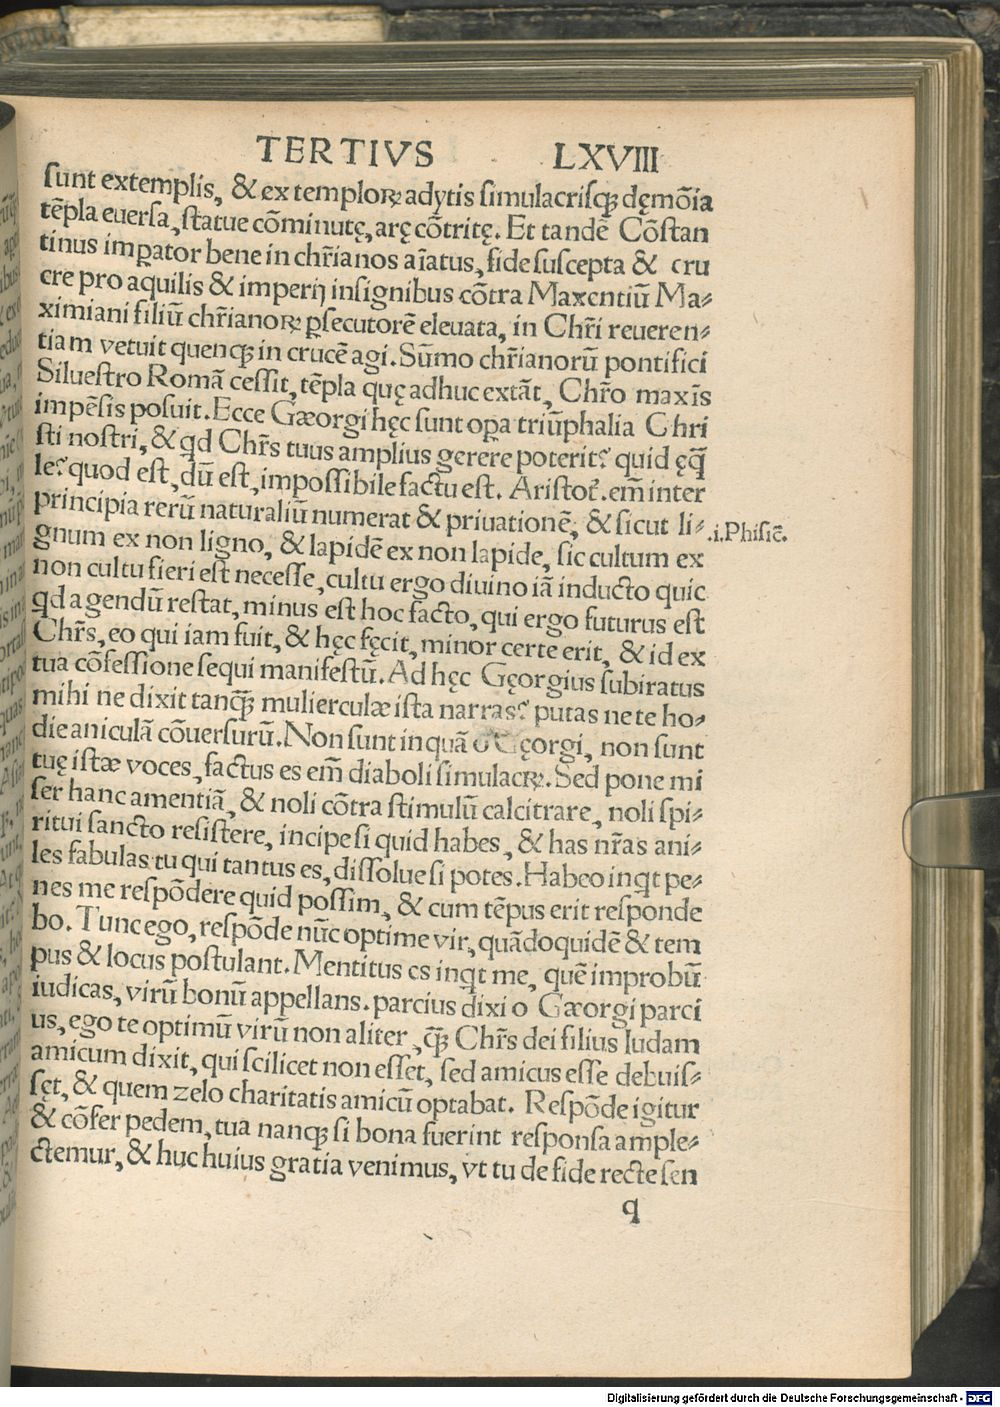 TERTIVS LXVIII
sunt extemplis, & ex temploꝝ adytis simulacrisqꝫ dęmōia
tēpla euersa, statue cōminutę, arę cōtritę. Et tandē Cōstan
tinus imꝑator bene in chr̄ianos aīatus, fide suscepta & cru
cre pro aquilis & imperij insignibus cōtra Maxentiū Ma⸗
ximiani filiū chr̄ianoꝝ ꝑsecutorē eleuata, in Chr̄i reueren⸗
tiam vetuit quenqꝫ in crucē agi. Sūmo chr̄ianorū pontifici
Siluestro Romā cessit, tēpla quę adhuc extāt, Chr̄o maxīs
impēsis posuit. Ecce Gæorgi hęc sunt oꝑa triūphalia Chri
sti nostri, & qd Chr̄s tuus amplius gerere poterit? quid ęq̄
le? quod est, dū est, impossibile factu est. Aristot̄. em̄ inter
principia rerū naturaliū numerat & priuationē, & sicut li⸗
.i.Phisic̄.
gnum ex non ligno, & lapidē ex non lapide, sic cultum ex
non cultu fieri est necesse, cultu ergo diuino iā inducto quic
qd agendū restat, minus est hoc facto, qui ergo futurus est
Chr̄s, eo qui iam fuit, & hęc fęcit, minor certe erit, & id ex
tua cōfessione sequi manifestū. Ad hęc Gęorgius subiratus
mihi ne dixit tanqꝫ̄ mulierculæ ista narras? putas ne te ho⸗
die aniculā cōuersurū. Non sunt inquā o Gęorgi, non sunt
tuę istæ voces, factus es em̄ diaboli simulacꝝ. Sed pone mi
ser hanc amentiā, & noli cōtra stimulū calcitrare, noli spi⸗
ritui sancto resistere, incipe si quid habes, & has nr̄as ani⸗
les fabulas tu qui tantus es, dissolue si potes. Habeo inqt pe⸗
nes me respōdere quid possim, & cum tēpus erit responde
bo. Tunc ego, respōde nūc optime vir, quādoquidē & tem
pus & locus postulant. Mentitus es inqt me, quē improbū
iudicas, virū bonū appellans. parcius dixi o Gæorgi parci
us, ego te optimū virū non aliter, qꝫ̄ Chr̄s dei filius Iudam
amicum dixit, qui scilicet non esset, sed amicus esse debuis⸗
sęt, & quem zelo charitatis amicū optabat. Respōde igitur
& cōfer pedem, tua nanqꝫ si bona fuerint responsa ample⸗
ctemur, & huc huius gratia venimus, vt tu de fide recte sen
q
Digitalisierung gefördert durch die Deutsche Forschungsgemeinschaft - DFG